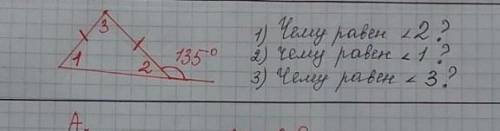 3
135°
1
2
1) Чему равен <2?
2) Чему равен <1?
3) Чему равен <3?
А